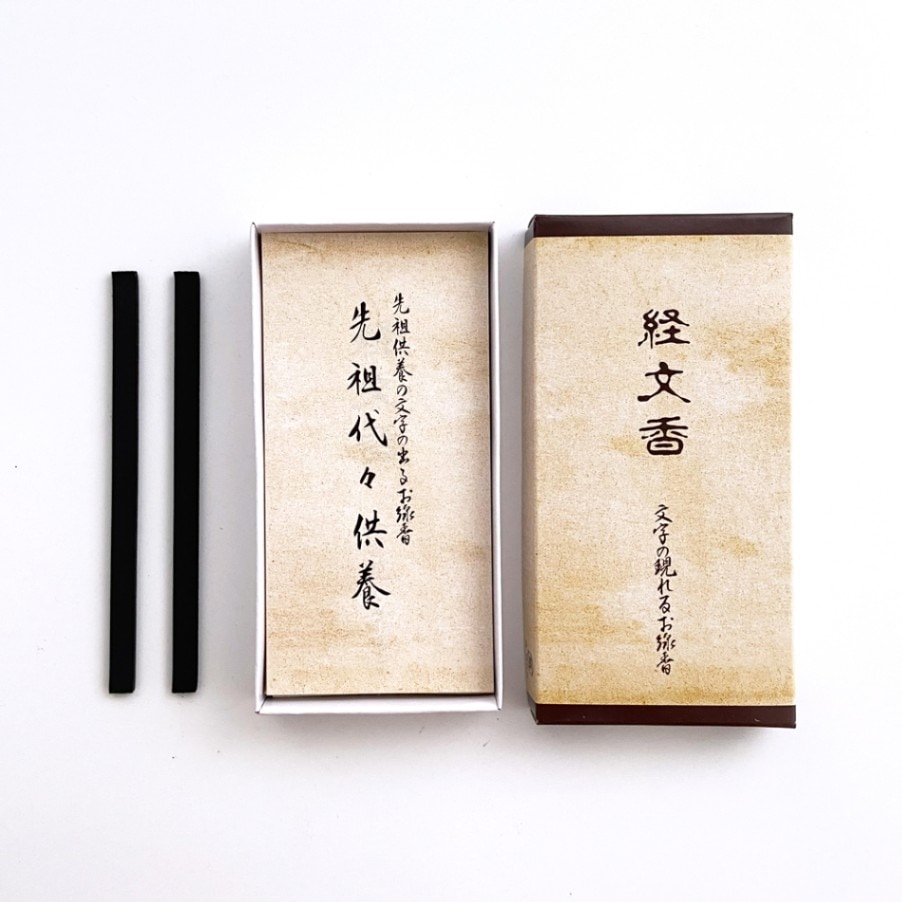 先祖供養の文字の出るお線香
先祖代々供養
経文香
文字の現れるお線香